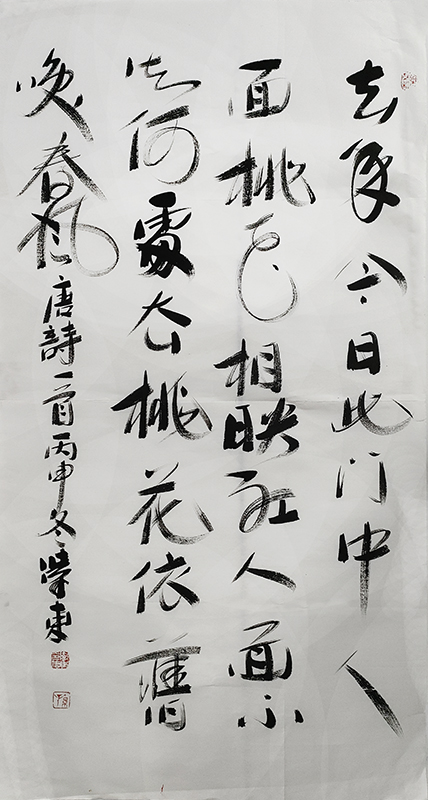 去年今日此门中人
面桃花相映红人面不
知何處去桃花依舊
咲春风
唐詩一首丙申冬東